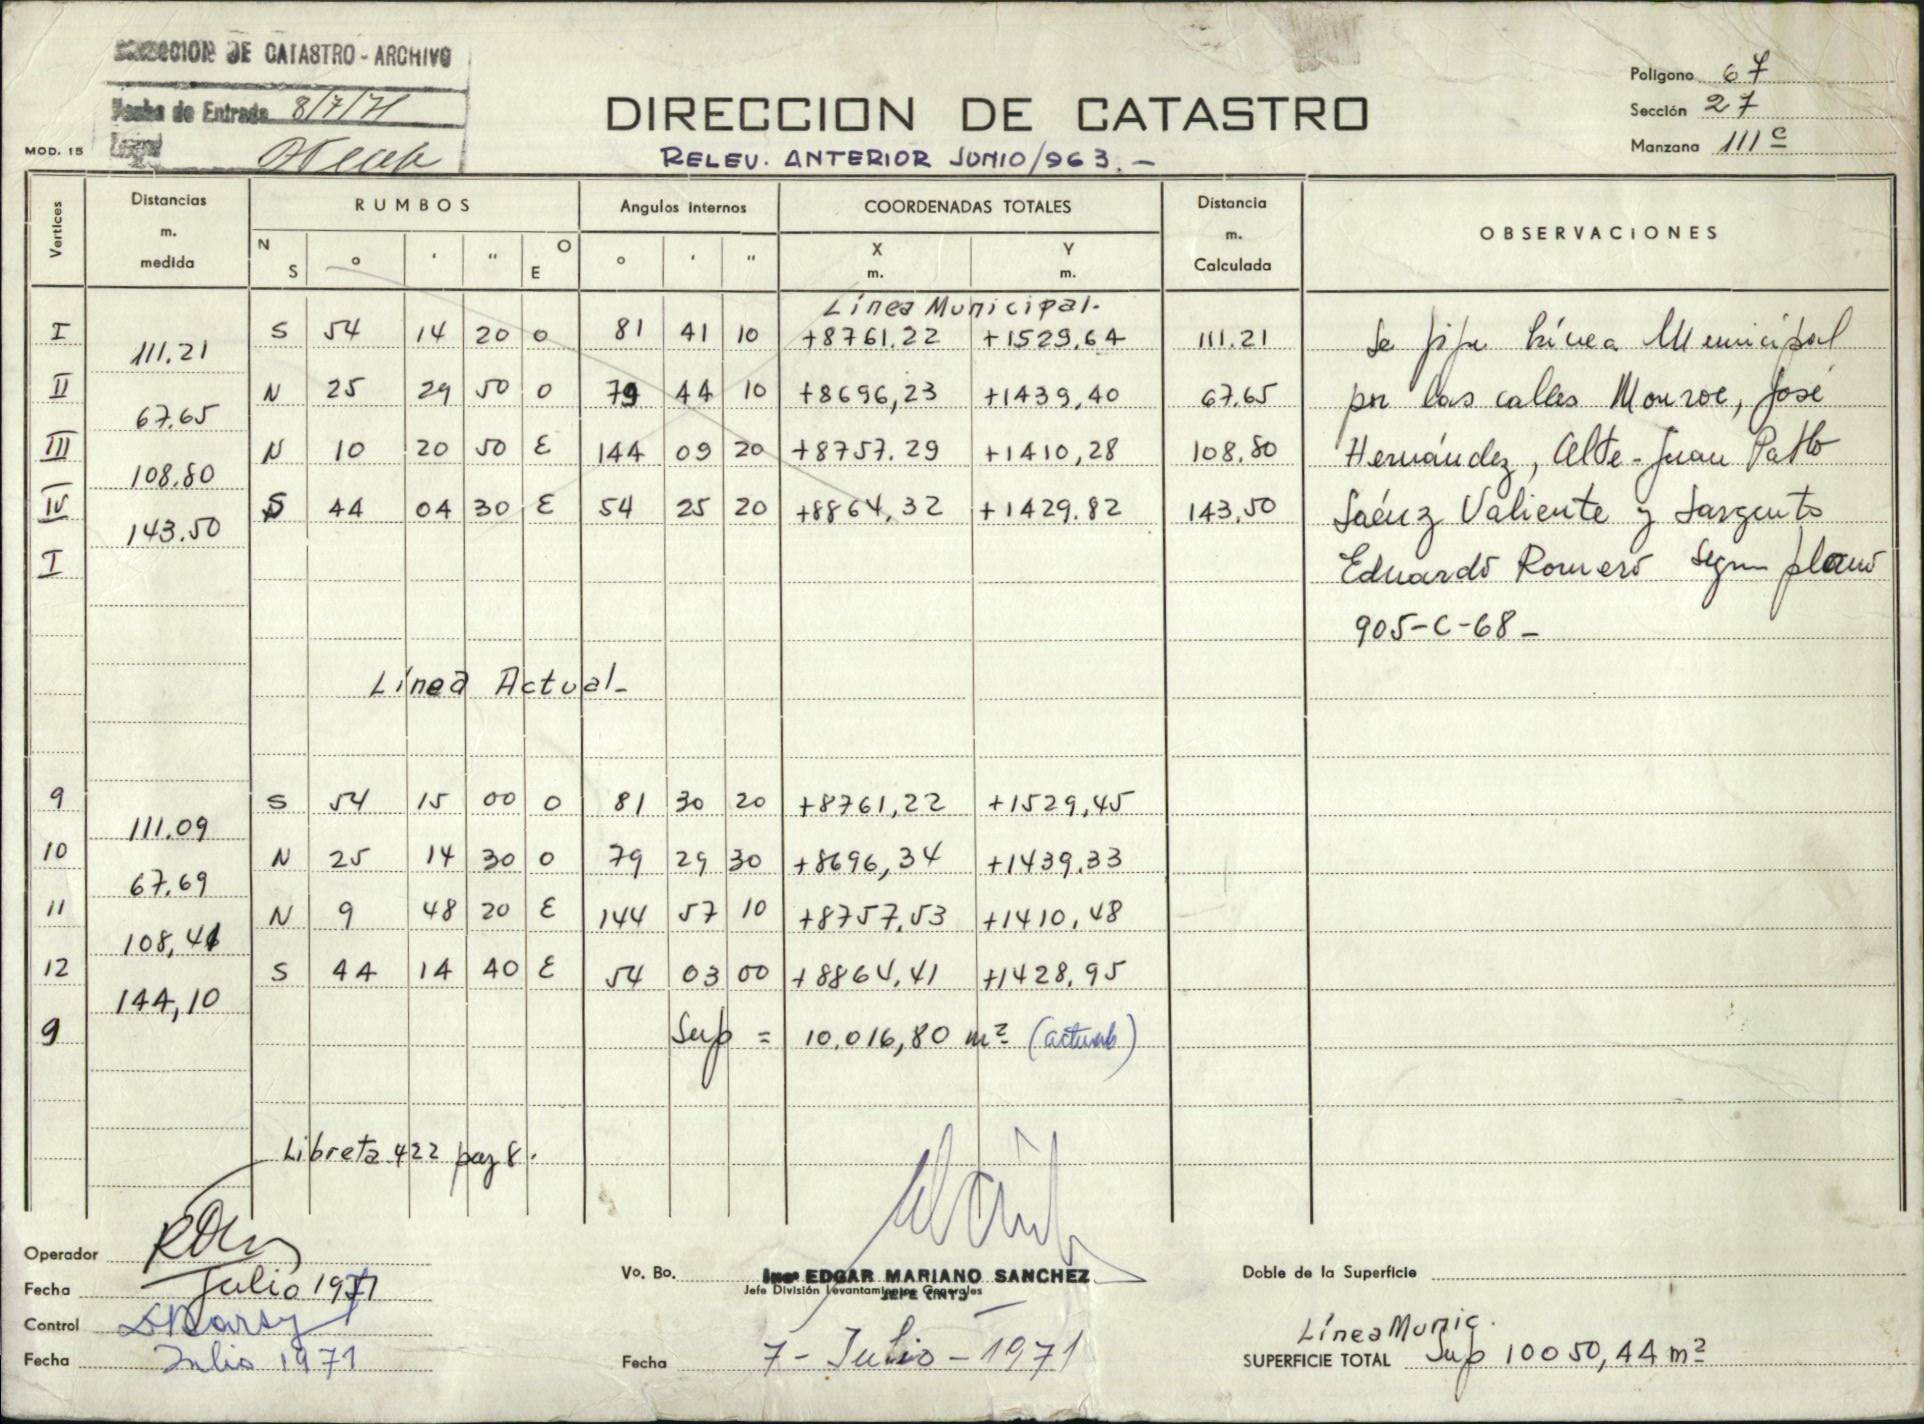 DIRECCION DE CATASTRO - ARCHIVO
Fecha de Entrada 8/7/71
Legajo
MOD. 15
DIRECCION DE CATASTRO
RELEV. ANTERIOR JUNIO/963.-
Polígono 67
Sección 27
Manzana 111 c
Vertices Distancias m. medida RUMBOS Angulos internos COORDENADAS TOTALES Distancia m. Calculada OBSERVACIONES
N S ° ' " O E ° ' " X m. Y m.
Línea Municipal.
I S 54 14 20 O 81 41 10 +8761,22 +1529,64 111.21 Se fija Línea Municipal
111.21
II N 25 29 50 O 79 44 10 +8696,23 +1439,40 67.65 por las calles Monroe, José
67.65
III N 10 20 50 E 144 09 20 +8757.29 +1410,28 108.80 Hernández, Alte. Juan Pablo
108.80
IV S 44 04 30 E 54 25 20 +8864,32 +1429.82 143,50 Saénz Valiente y Sargento
143.50
I Eduardo Romero segun plano
905-C-68-
Línea Actual-
9 S 54 15 00 O 81 30 20 +8761,22 +1529,45
111.09
10 N 25 14 30 O 79 29 30 +8696,34 +1439.33
67.69
11 N 9 48 20 E 144 57 10 +8757,53 +1410,48
108,41
12 S 44 14 40 E 54 03 00 +8864,41 +1428,95
144,10
9 Sup = 10.016,80 m² (actual)
Libreta 422 pag 8.
Operador
Fecha Julio 1971
Control
Fecha Julio 1971
Vo. Bo. Ingº EDGAR MARIANO SANCHEZ
Jefe División Levantamientos Generales
JEFE (INT)
Fecha 7 - Julio - 1971
Doble de la Superficie
Línea Munic.
SUPERFICIE TOTAL Sup 10050,44 m²